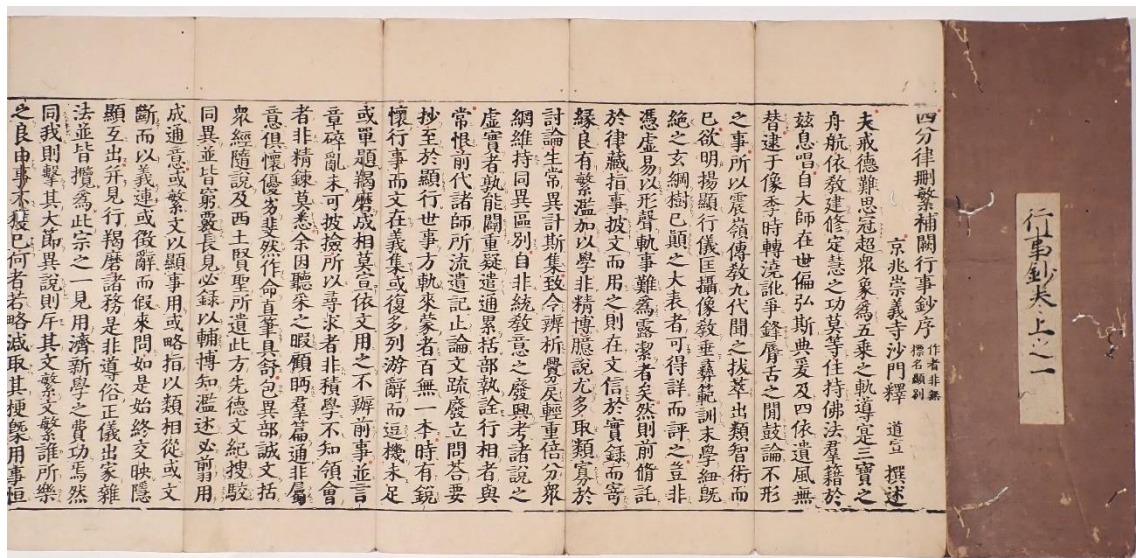 行事鈔 上之一
四分律刪繁補闕行事鈔序 作者非無標名顯別
京兆崇義寺沙門釋 道宣 撰述
夫戒德難思冠超衆象為五乘之軌導寔三寶之
舟航依教建修定慧之功莫等住持佛法羣籍於
茲息唱自大師在世偏弘斯典爰及四依遺風無
替逮于像季時轉澆訛爭鋒脣舌之間鼓論不形
之事所以震嶺傳教九代聞之拔萃出類智術而
已欲明揚顯行儀匡攝像教垂彝範訓末學紐既
絕之玄綱樹已顛之大表者可得詳而評之豈非
憑虛易以形聲軌事難為露潔者矣然則前脩託
於律藏指事披文而用之則在文信於實錄而寄
緣良有繁濫加以學非精博臆說尤多取類寡於
討論生常異計斯集致令辨析舋戾輕重倍分衆
網維持同異區別自非統教意之廢興考諸說之
虛實者孰能闢重疑遣通累括部執詮行相者與
常恨前代諸師所流遺記止論文疏廢立問答要
抄至於顯行世事方軌來蒙者百無一本時有銳
懷行事而文在義集或復多列游辭而逗機未足
或單題羯磨成相莫宣依文用之不辨前事並言
章碎亂未可披撿所以尋求者非積學不知領會
者非精鍊莫悉余因聽采之暇顧眄羣篇通非屬
意俱懷優劣斐然作命直筆具舒包異部誠文括
衆經隨說及西土賢聖所遺此方先德文紀搜駮
同異並皆窮覈長見必錄以輔博知濫述必剪用
成通意或繁文以顯事用或略指以類相從或文
斷而以義連或徵辭而假來問如是始終交映隱
顯互出并見行羯磨諸務是非導俗正儀出家雜
法並皆攬為此宗之一見用濟新學之費功焉然
同我則擊其大節異說則斥其文繁文繁誰所樂
之良由事不獲已何者若略減取其梗槩用事恒